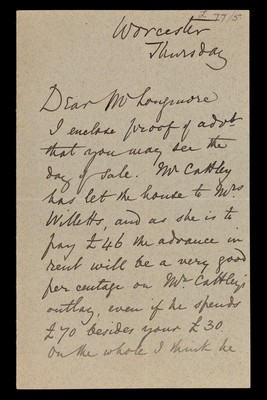 £ 77/5
Worcester
Thursday
Dear Mr Longmore
I enclose proof of advt
that you may see the
day of sale. Mr Cattley
has let the house to Mrs
Willetts, and as she is to
pay £46 the advance in
rent will be a very good
per centage on Mr Cattley's
outlay, even if he spends
£70 besides your £30.
On the whole I think he